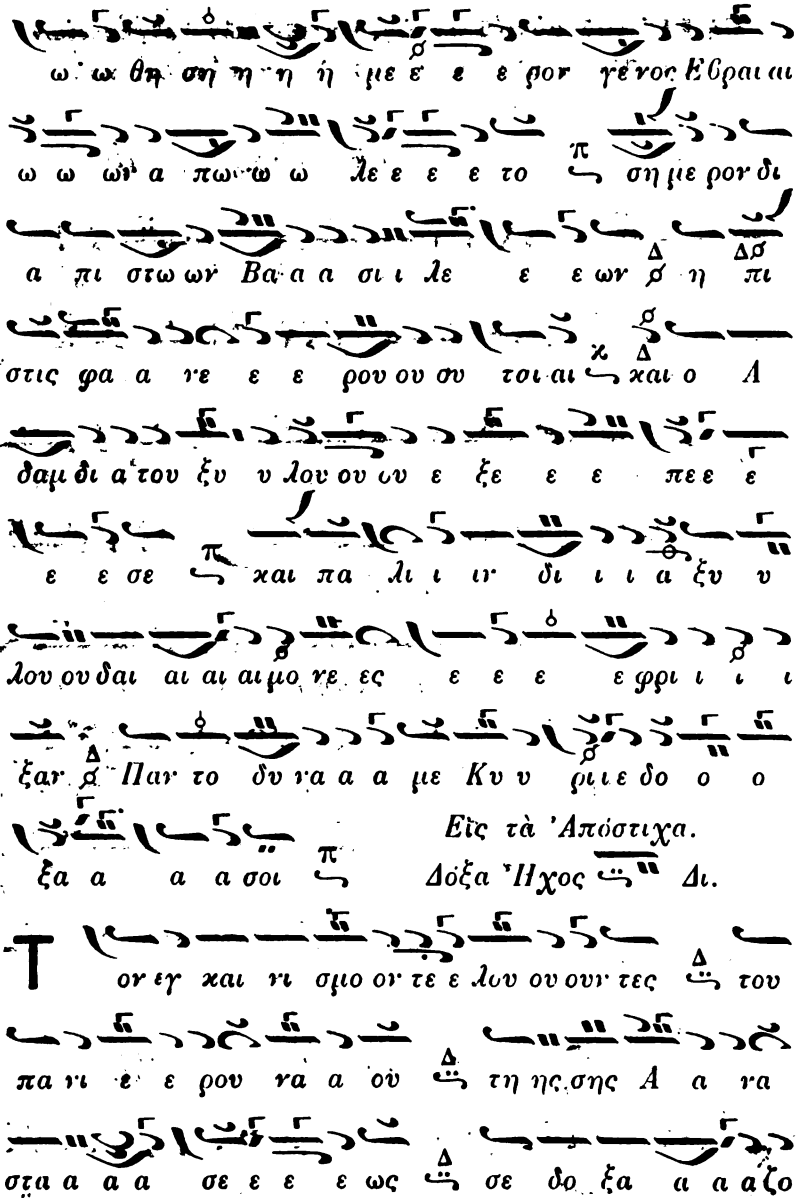 ω ω θη ση η η ή με ε ε ε ρον γε νος Εβραι αι
ω ω ων α πω ω ω λε ε ε ε το π ση με ρον δι
α πι στω ων Βα α α σι ι λε ε ε ων Δ η πι
στις φα α νε ε ε ρου ου συ τσι αι κ και ο Α
δαμ δι α του ξυ υ λου ου ου ε ξε ε ε πε ε ε
ε ε σε π και πα λι ι ιν δι ι ι α ξυ υ
λου ου δαι αι αι αι μο νε ες ε ε ε ε φρι ι ι ι
ξαν Δ Παν το δυ να α α με Κυ υ ρι ι ε δο ο ο
ξα α α α σοι π Εἰς τὰ Ἀπόστιχα.
Δόξα Ἦχος Δι.
Τον εγ και νι σμο ον τε ε λου ου ουν τες Δ του
πα νι ε ε ρου να α ου Δ τη ης σης Α α να
στα α α α σε ε ε ε ως Δ σε δο ξα α α α ζο